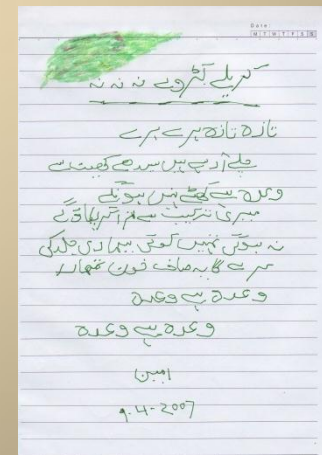 Date:
M T W T F S S
کریلے کڑوے نہ نہ نہ
تازہ تازہ ہرے ہرے
چلے آرہے ہیں سیدھے کھیت سے
وعدہ ہے کھٹے نہیں ہونگے
میری ترکیب سے اگر پکاؤ گے
نہ ہوگی تمہیں کوئی بیماری جلد کی
کرے گا یہ صاف خون تمہارا
وعدہ ہے وعدہ
وعدہ ہے وعدہ
امبن
9-4-2007